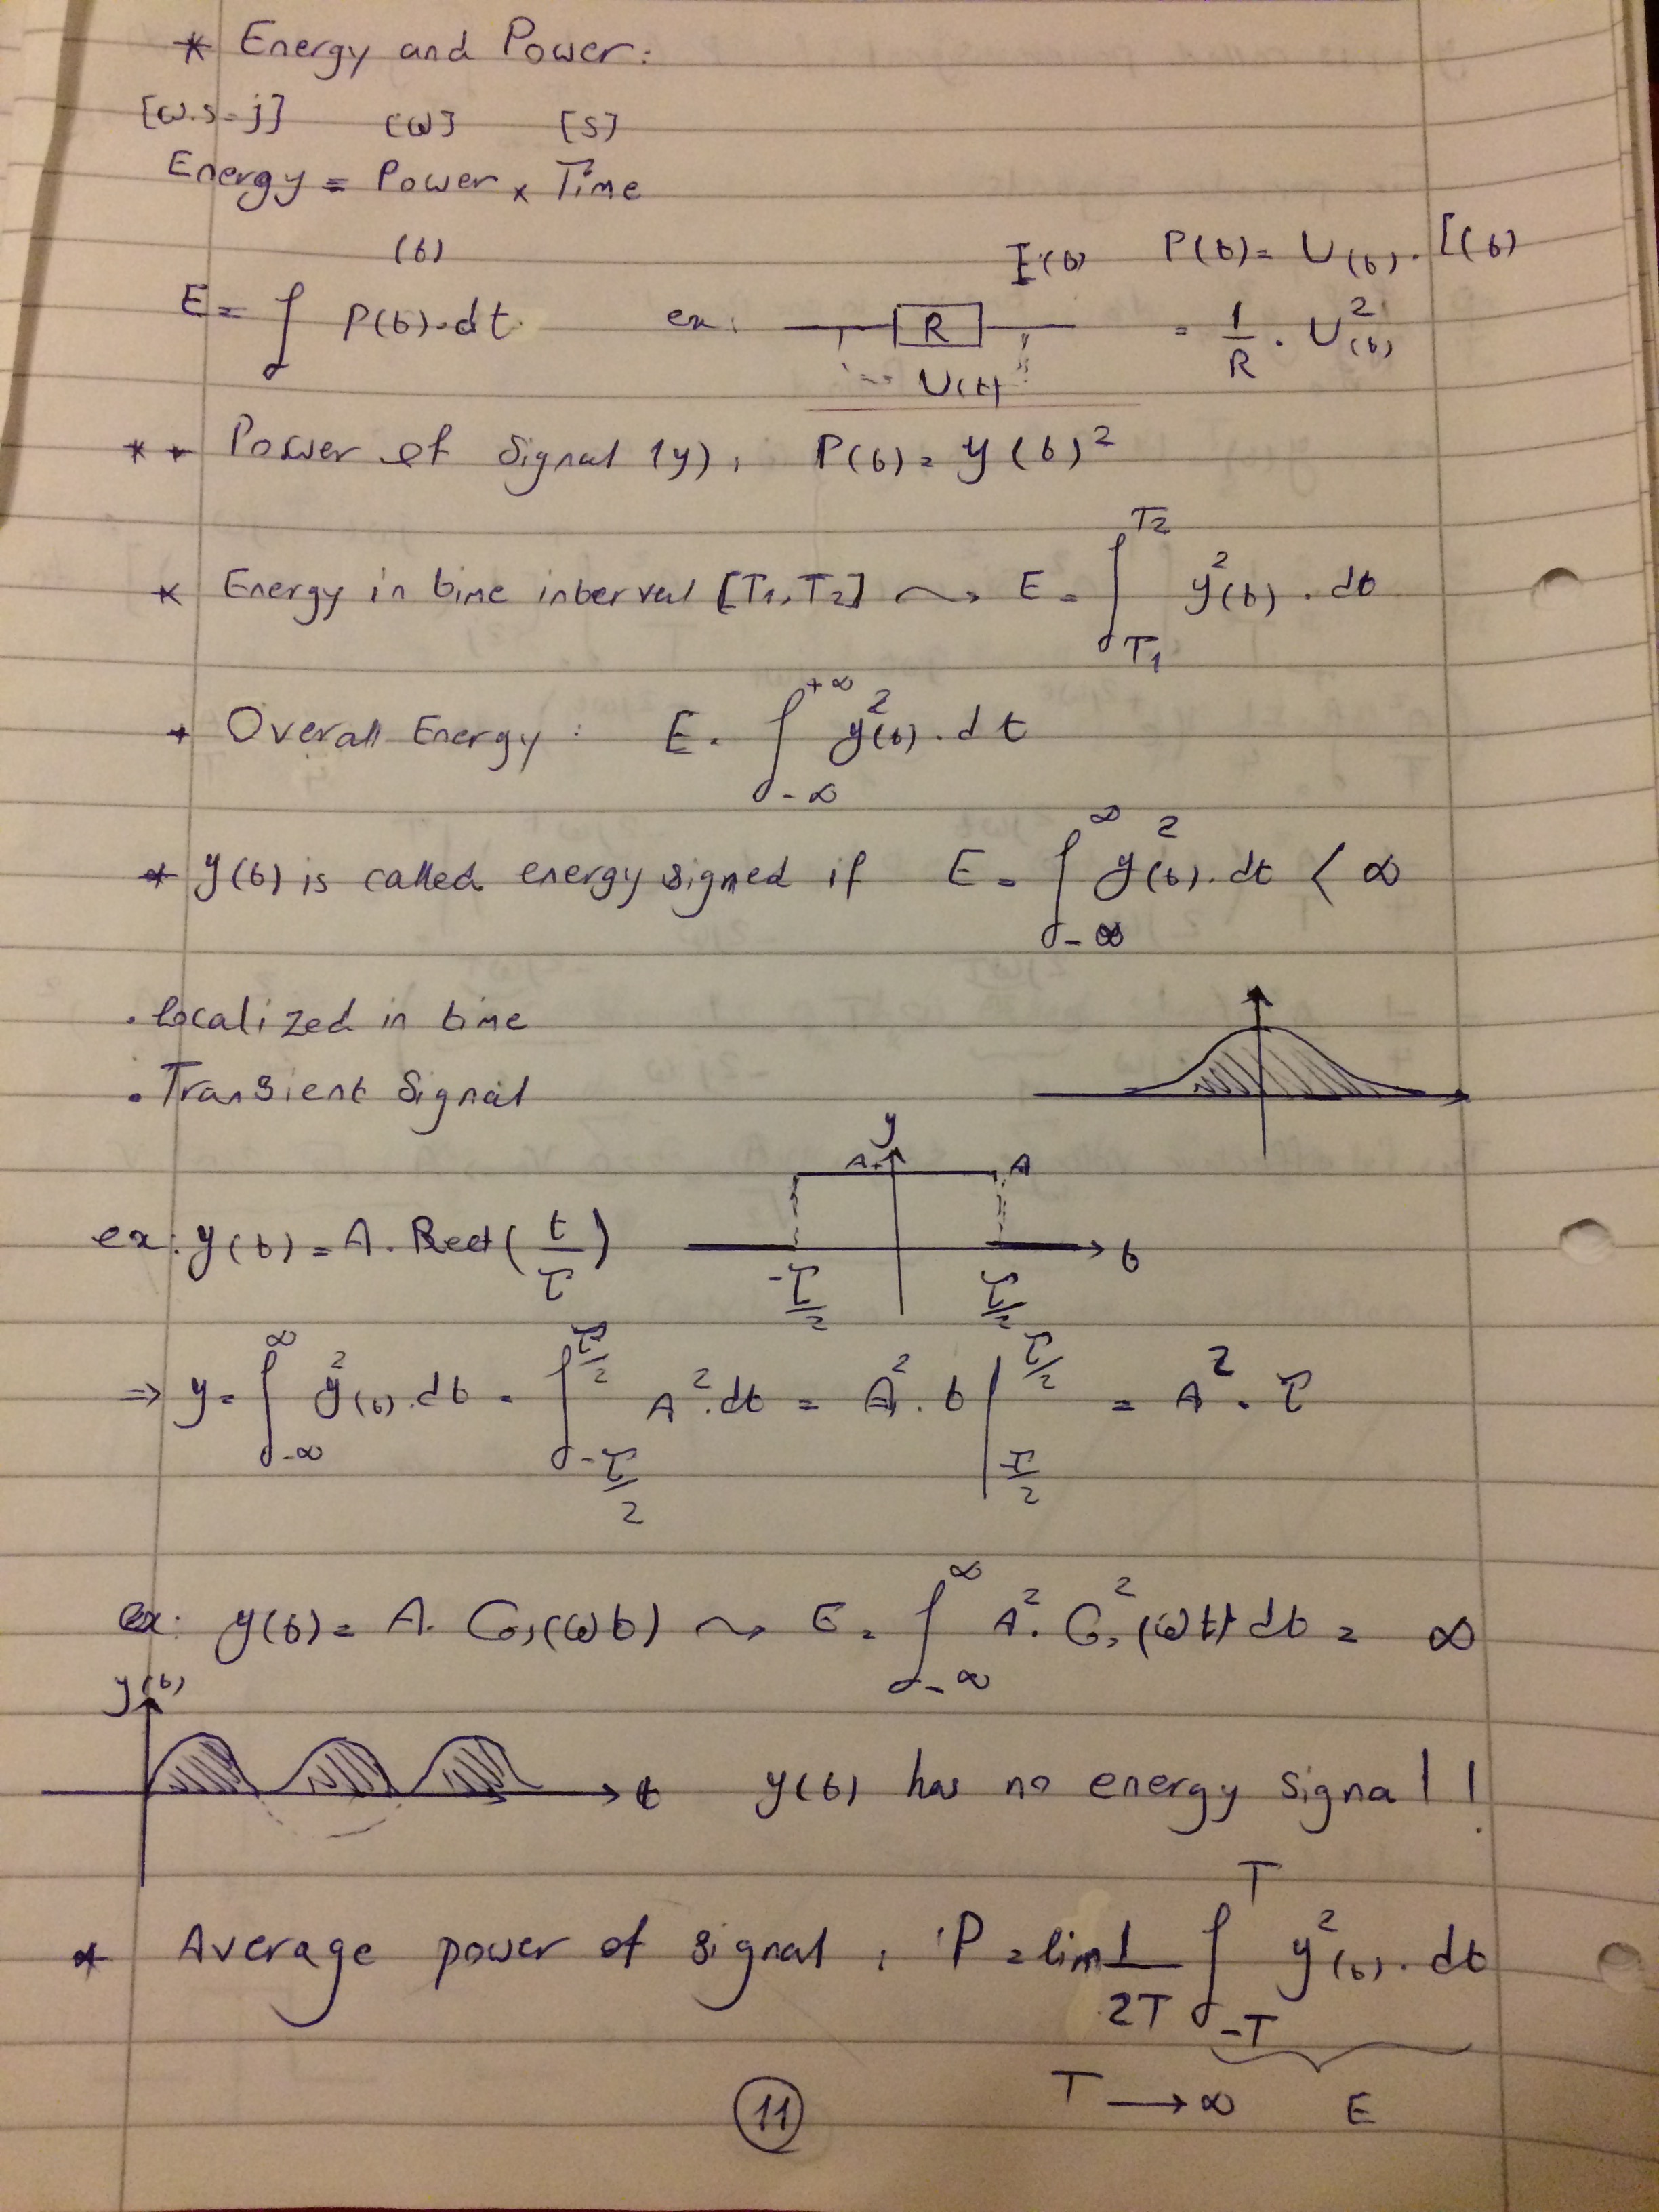 * Energy and Power:
[w.s=j] [w] [s]
Energy = Power x Time
(t)
I(t) P(t) = U(t) . I(t)
E = ∫ P(t).dt ex: R = 1/R . U²(t)
U(t)
** Power of Signal (y): P(t) = y(t)²
* Energy in time interval [T1,T2] ⇝ E = ∫_T1^T2 y²(t) . dt
* Overall Energy: E = ∫_-∞^+∞ y²(t) . dt
* y(t) is called energy signed if E = ∫_-∞^∞ y²(t) . dt < ∞
. Localized in time
. Transient Signal
y
A A
ex: y(t) = A . Rect(t/τ) t
-τ/2 τ/2
⇒ y = ∫_-∞^∞ y²(t) . dt = ∫_-τ/2^τ/2 A² . dt = A² . t |_-τ/2^τ/2 = A² . τ
ex: y(t) = A . Cos(ωt) ⇝ E = ∫_-∞^∞ A² . Cos²(ωt) dt = ∞
y(t)
t y(t) has no energy signal !
* Average power of signal : P = lim 1/2T ∫_-T^T y²(t) . dt
T → ∞ E
11